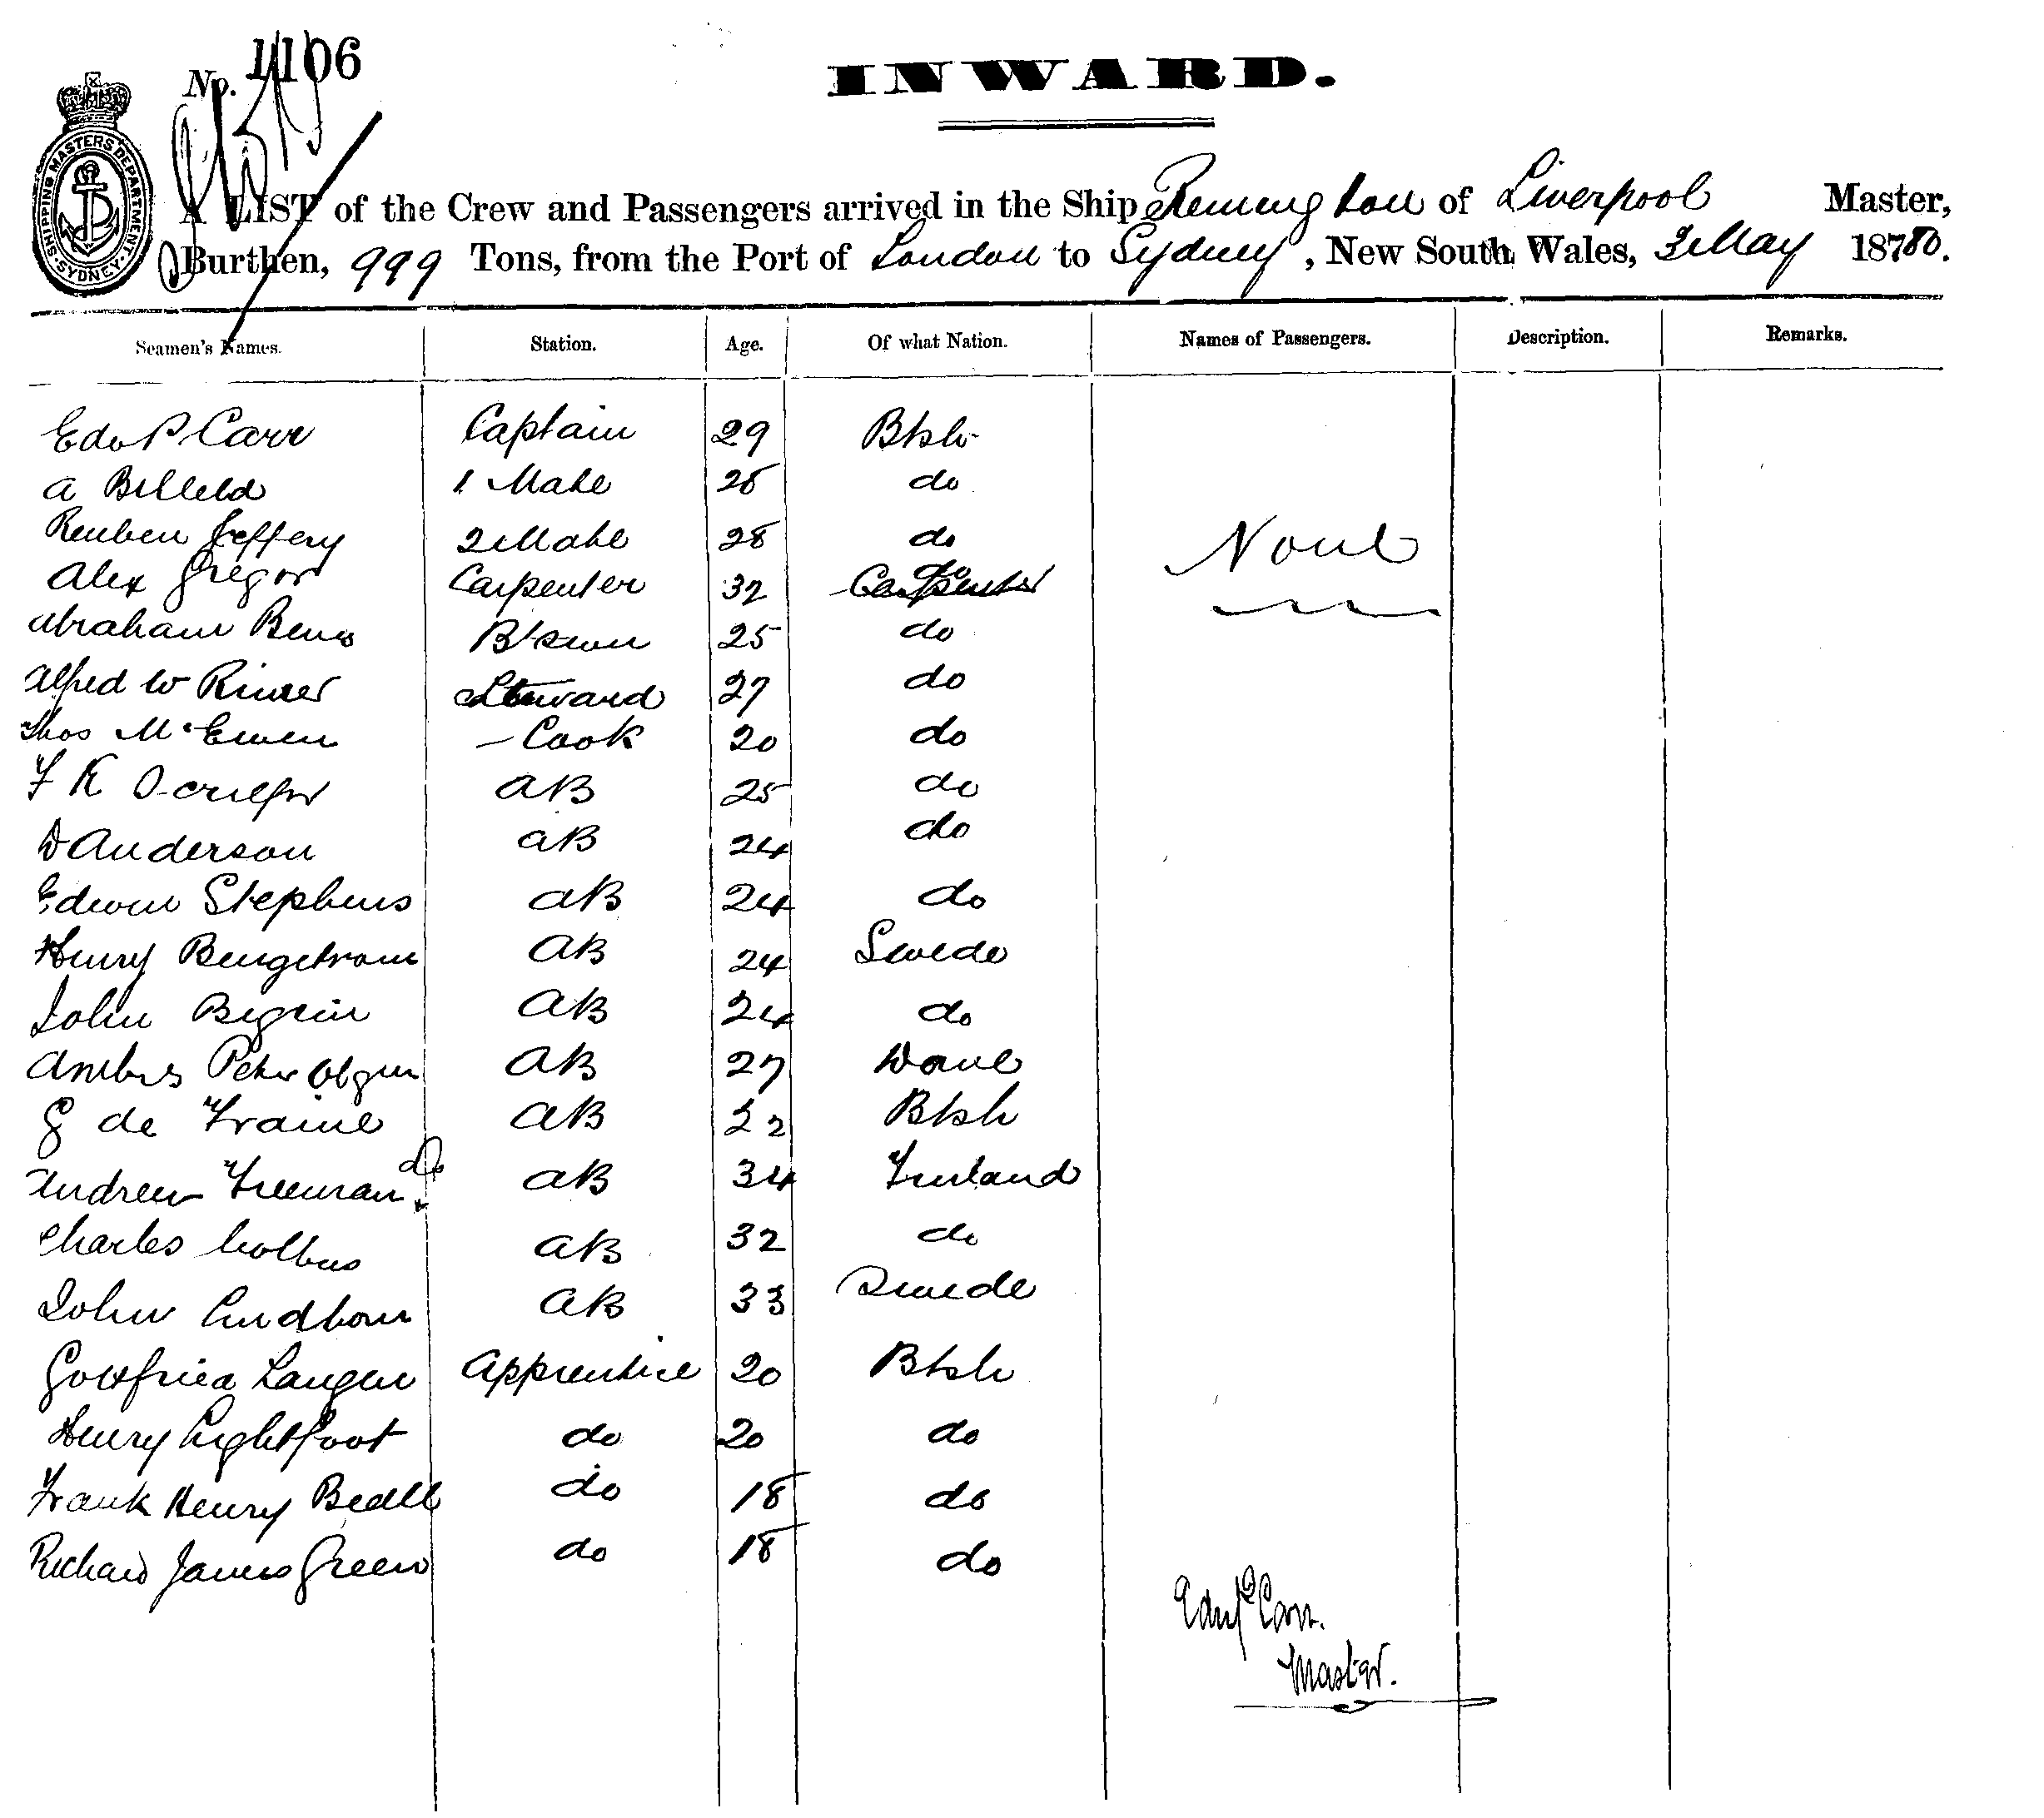 No. 1106
INWARD.
SHIPPING MASTERS DEPARTMENT · SYDNEY ·
A LIST of the Crew and Passengers arrived in the Ship Remington of Liverpool Master,
Burthen, 999 Tons, from the Port of London to Sydney, New South Wales, 3 May 1880.
Seamen's Names. Station. Age. Of what Nation. Names of Passengers. Description. Remarks.
Edw P Carr Captain 29 Btsh
A 1 Mate 26 do
Reuben Jeffery 2 Mate 28 do None
Alex Gregor Carpenter 32 Carpenter do
Abraham Btswn 25 do
Alfred W Steward 27 do
Thos McEwen Cook 20 do
F K AB 25 do
D Anderson AB 24 do
Edwin Stephens AB 24 do
Henry Bengstrom AB 24 Swede
John AB 24 do
Peter AB 27 Dane
G de Fraine AB 22 Btsh
Andrew Freeman AB 34 Finland
Charles AB 32 do
John Lindbom AB 33 Swede
Gottfried Langen Apprentice 20 Btsh
Henry Lightfoot do 20 do
Frank Henry Beall do 18 do
Richard James Green do 18 do
Edw P Carr.
Master.